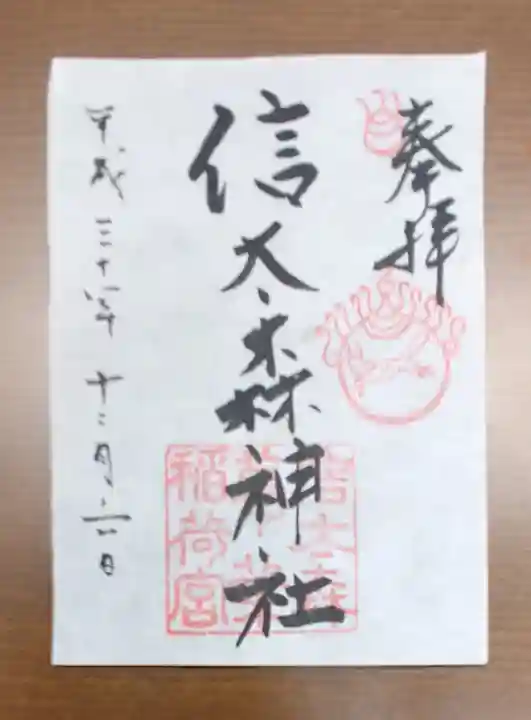 奉拝
信太森神社
平成三十年十二月二六日
稲荷宮